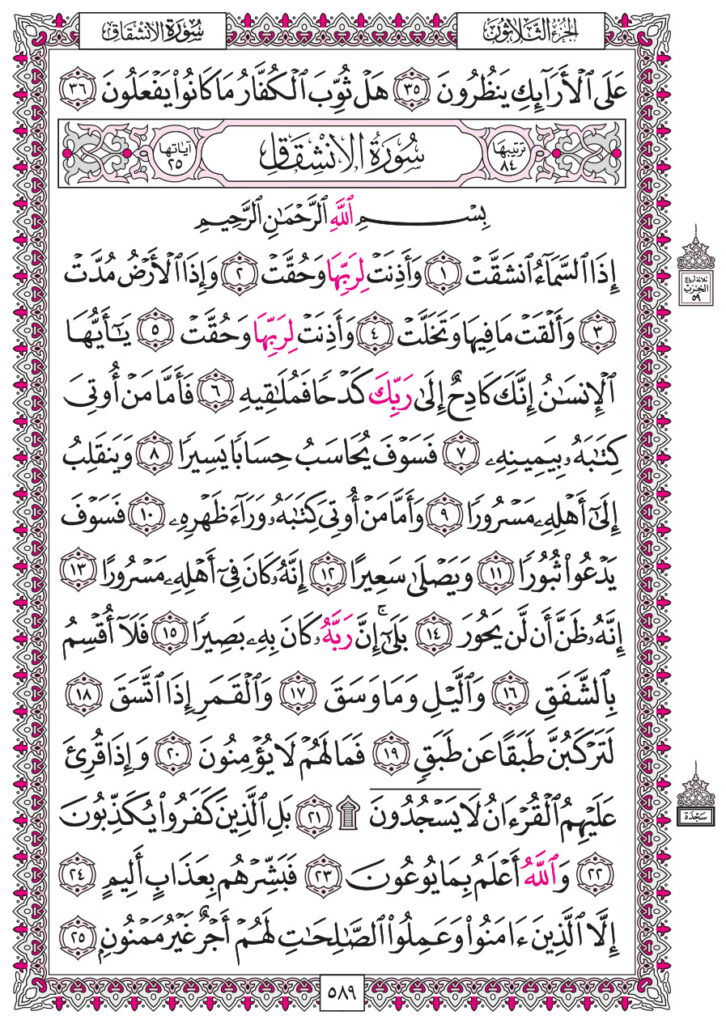 الجزء الثلاثون
سورة الانشقاق
عَلَى ٱلْأَرَآئِكِ يَنظُرُونَ ٣٥ هَلْ ثُوِّبَ ٱلْكُفَّارُ مَا كَانُوا۟ يَفْعَلُونَ ٣٦
ترتيبها ٨٤ سُورَةُ الانْشِقَاقِ آياتها ٢٥
بِسْمِ ٱللَّهِ ٱلرَّحْمَٰنِ ٱلرَّحِيمِ
إِذَا ٱلسَّمَآءُ ٱنشَقَّتْ ١ وَأَذِنَتْ لِرَبِّهَا وَحُقَّتْ ٢ وَإِذَا ٱلْأَرْضُ مُدَّتْ
٣ وَأَلْقَتْ مَا فِيهَا وَتَخَلَّتْ ٤ وَأَذِنَتْ لِرَبِّهَا وَحُقَّتْ ٥ يَٰٓأَيُّهَا
ٱلْإِنسَٰنُ إِنَّكَ كَادِحٌ إِلَىٰ رَبِّكَ كَدْحًا فَمُلَٰقِيهِ ٦ فَأَمَّا مَنْ أُوتِىَ
كِتَٰبَهُۥ بِيَمِينِهِۦ ٧ فَسَوْفَ يُحَاسَبُ حِسَابًا يَسِيرًا ٨ وَيَنقَلِبُ
إِلَىٰٓ أَهْلِهِۦ مَسْرُورًا ٩ وَأَمَّا مَنْ أُوتِىَ كِتَٰبَهُۥ وَرَآءَ ظَهْرِهِۦ ١٠ فَسَوْفَ
يَدْعُوا۟ ثُبُورًا ١١ وَيَصْلَىٰ سَعِيرًا ١٢ إِنَّهُۥ كَانَ فِىٓ أَهْلِهِۦ مَسْرُورًا ١٣
إِنَّهُۥ ظَنَّ أَن لَّن يَحُورَ ١٤ بَلَىٰٓ ۚ إِنَّ رَبَّهُۥ كَانَ بِهِۦ بَصِيرًا ١٥ فَلَآ أُقْسِمُ
بِٱلشَّفَقِ ١٦ وَٱلَّيْلِ وَمَا وَسَقَ ١٧ وَٱلْقَمَرِ إِذَا ٱتَّسَقَ ١٨
لَتَرْكَبُنَّ طَبَقًا عَن طَبَقٍ ١٩ فَمَا لَهُمْ لَا يُؤْمِنُونَ ٢٠ وَإِذَا قُرِئَ
عَلَيْهِمُ ٱلْقُرْءَانُ لَا يَسْجُدُونَ ۩ ٢١ بَلِ ٱلَّذِينَ كَفَرُوا۟ يُكَذِّبُونَ
٢٢ وَٱللَّهُ أَعْلَمُ بِمَا يُوعُونَ ٢٣ فَبَشِّرْهُم بِعَذَابٍ أَلِيمٍ ٢٤
إِلَّا ٱلَّذِينَ ءَامَنُوا۟ وَعَمِلُوا۟ ٱلصَّٰلِحَٰتِ لَهُمْ أَجْرٌ غَيْرُ مَمْنُونٍۭ ٢٥
ثلاثة أرباع
الحزب
٥٩
سجدة
٥٨٩